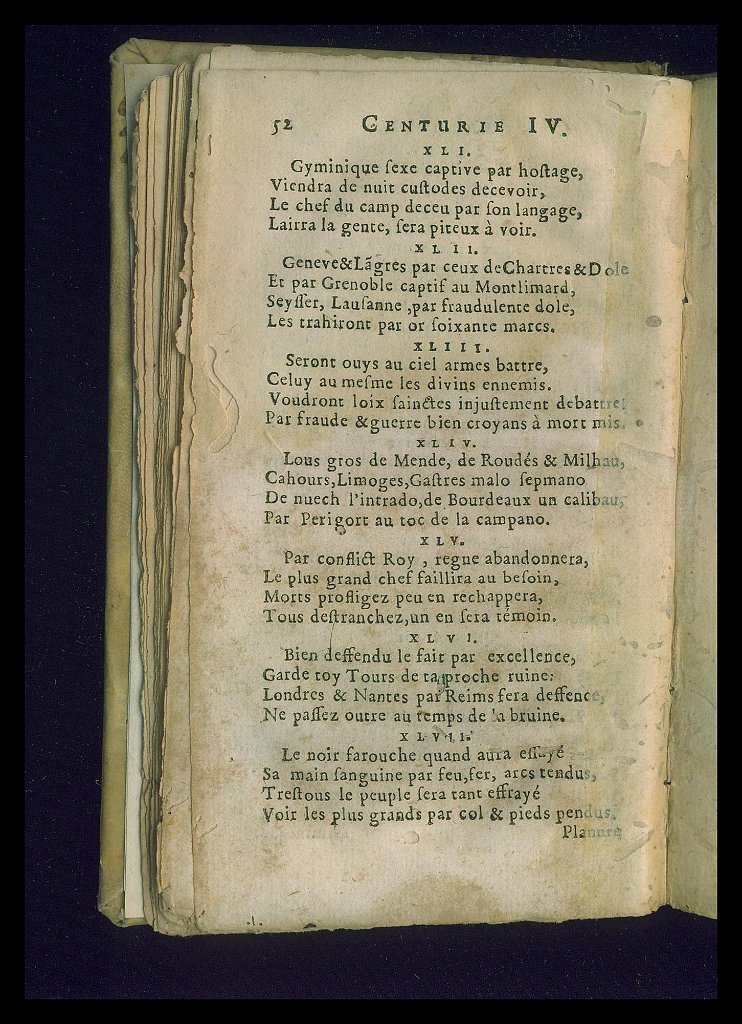 52 CENTURIE IV.
XLI.
Gyminique ſexe captive par hoſtage,
Viendra de nuit cuſtodes decevoir,
Le chef du camp deceu par ſon langage,
Lairra la gente, ſera piteux à voir.
XLII.
Geneve&Lãgres par ceux deChartres&Dole
Et par Grenoble captif au Montlimard,
Seyſſer, Lauſanne ,par fraudulente dole,
Les trahiront par or ſoixante marcs.
XLIII.
Seront ouys au ciel armes battre,
Celuy au meſme les divins ennemis.
Voudront loix ſainctes injuſtement debattre:
Par fraude &guerre bien croyans à mort mis.
XLIV.
Lous gros de Mende, de Roudés & Milhau,
Cahours,Limoges,Gaſtres malo ſepmano
De nuech l'intrado,de Bourdeaux un calibau,
Par Perigort au toc de la campano.
XLV.
Par conflict Roy , regne abandonnera,
Le plus grand chef faillira au beſoin,
Morts profligez peu en rechappera,
Tous deſtranchez,un en ſera témoin.
XLVI.
Bien deffendu le fait par excellence,
Garde toy Tours de ta proche ruine:
Londres & Nantes par Reims fera deffence,
Ne paſſez outre au temps de la bruine.
XLVII.
Le noir farouche quand aura eſſayé
Sa main ſanguine par feu,fer, arcs tendus,
Treſtous le peuple ſera tant effrayé
Voir les plus grands par col & pieds pendus.
Planure